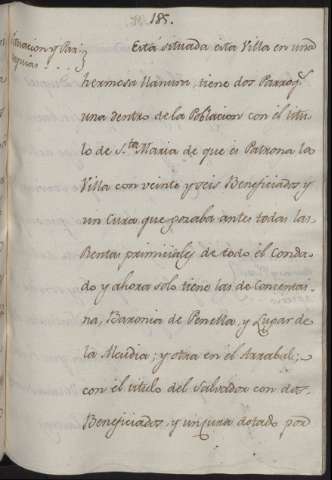 185.
Situacion y Par-
roquias...
Está situada esta Villa en una
hermosa llanura, tiene dos Parroqs
una dentro de la Poblacion con el titu-
lo de S.ta Maria de que es Patrona la
Villa con veinte y seis Beneficiados y
un Cura que gozaba antes todas las
Rentas primiciales de todo el Conda-
do y ahora solo tiene las de Concentai-
na, Baronia de Penella, y Lugar de
la Alcudia; y otra en el Arrabal;
con el titulo del Salvador con dos
Beneficiados, y un Cura dotado por